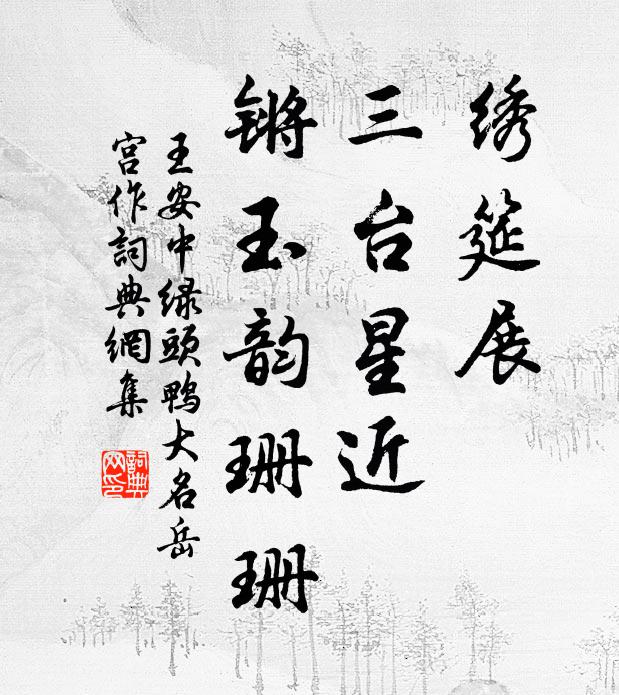 绣筵展
三台星近
锵玉韵珊珊
王安中绿頭鸭大名岳
宫作詞典網集
詞典网印